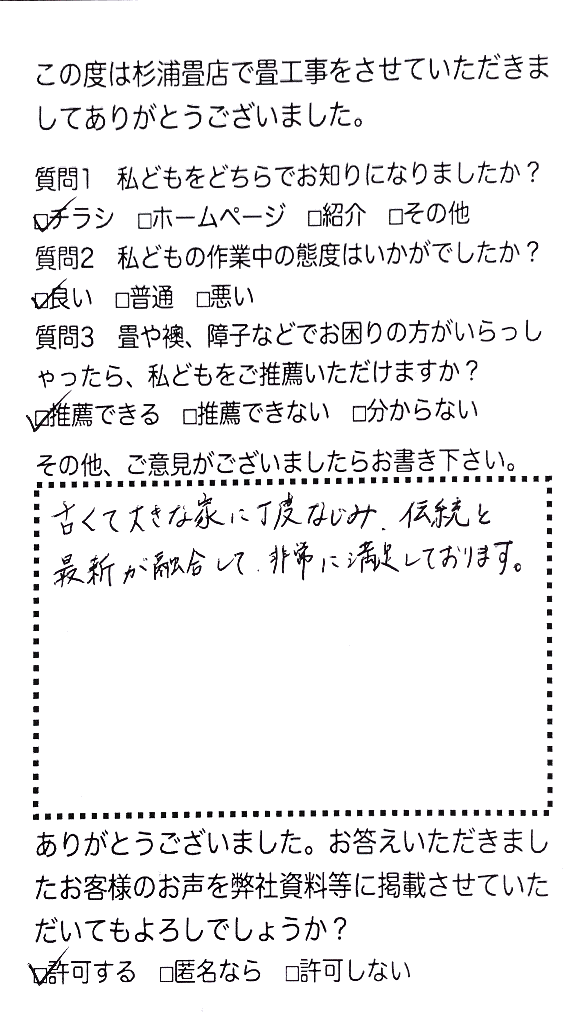 この度は杉浦畳店で畳工事をさせていただきま
してありがとうございました。
質問1　私どもをどちらでお知りになりましたか？
☑チラシ　□ホームページ　□紹介　□その他
質問2　私どもの作業中の態度はいかがでしたか？
☑良い　□普通　□悪い
質問3　畳や襖、障子などでお困りの方がいらっし
ゃったら、私どもをご推薦いただけますか？
☑推薦できる　□推薦できない　□分からない
その他、ご意見がございましたらお書き下さい。
古くて大きな家に丁度なじみ、伝統と
最新が融合して、非常に満足しております。
ありがとうございました。お答えいただきまし
たお客様のお声を弊社資料等に掲載させていた
だいてもよろしでしょうか？
☑許可する　□匿名なら　□許可しない